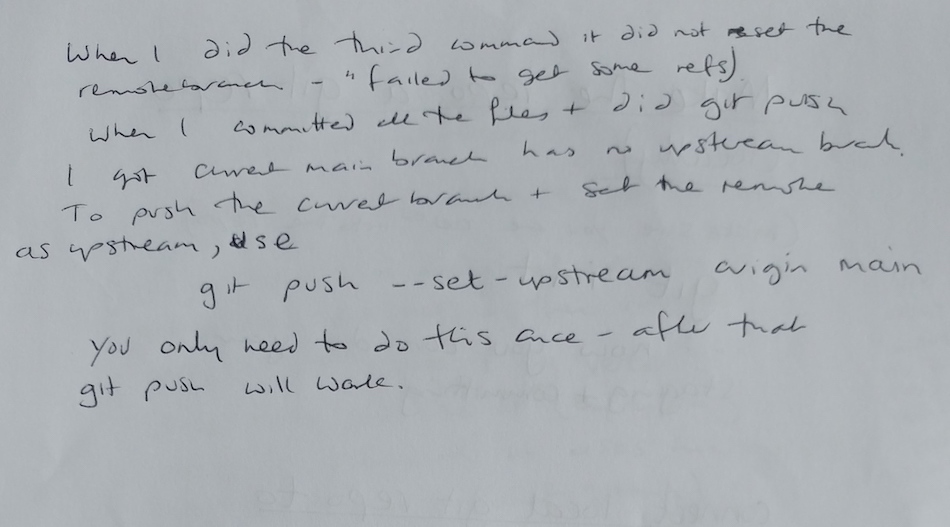 When I did the third command it did not reset the
remote branch - "failed to get some refs)
When I committed all the files + did git push
I got current main branch has no upstream brach.
To push the current branch + set the remote
as upstream, use
git push --set-upstream origin main
You only need to do this once - after that
git push will work.